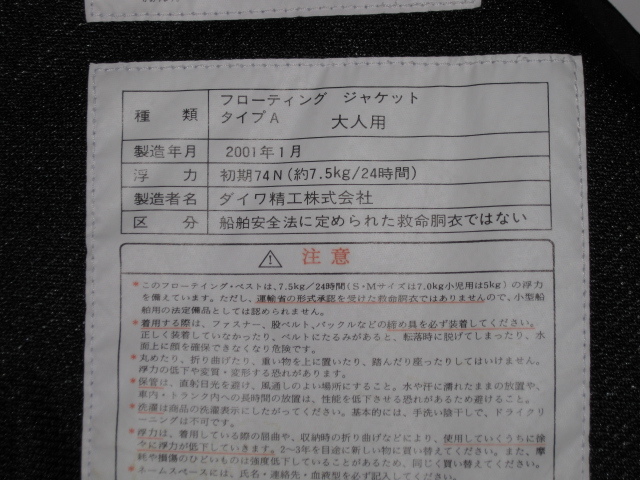 種類 フローティング ジャケット
タイプA 大人用
製造年月 2001年1月
浮力 初期74N(約7.5kg/24時間)
製造者名 ダイワ精工株式会社
区分 船舶安全法に定められた救命胴衣ではない
⚠ 注意
●このフローティング・ベストは、7.5kg/24時間(S・Mサイズは7.0kg小児用は5kg)の浮力
を備えています。ただし、運輸省の形式承認を受けた救命胴衣ではありませんので、小型船
舶用の法定備品としては認められません。
●着用する際は、ファスナー、股ベルト、バックルなどの締め具を必ず装着してください。
正しく装着していなかったり、ベルトにたるみがあると、転落時に脱げてしまったり、水
面上に顔を確保できなくなり危険です。
●丸めたり、折り曲げたり、重い物を上に置いたり、踏んだり座ったりしてはいけません。
浮力の低下や変質・変形する恐れがあります。
●保管は、直射日光を避け、風通しのよい場所にすること。水や汗に濡れたままの放置や、
車内・トランク内への長時間の放置は、性能を低下させる恐れがあるため避けること。
●洗濯は商品の洗濯表示にしたがってください。基本的には、手洗い陰干しで、ドライクリ
ーニングは不可です。
●浮力は、着用している際の屈曲や、収納時の折り曲げなどにより、使用していくうちに徐々
に浮力が低下していきます。2〜3年を目途に新しい物に買い替えてください。また、摩
耗や損傷のひどいものは強度低下していることがあるため、同じく買い替えてください。
●ネームスペースには、氏名・連絡先・血液型を必ず記入してください。